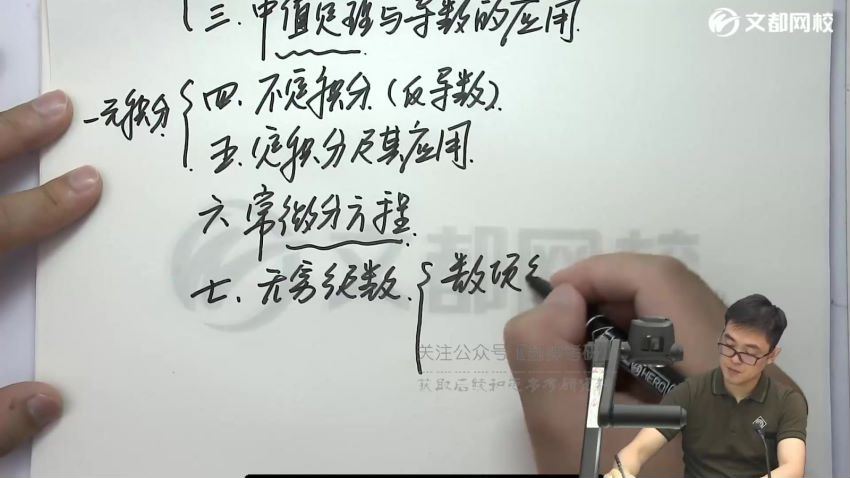 三.中值定理与导数的应用.
文都网校
一元积分
四.不定积分(反导数).
五.定积分及其应用.
六常微分方程.
文都网校
七.无穷级数.
数项
关注公众号
HERO